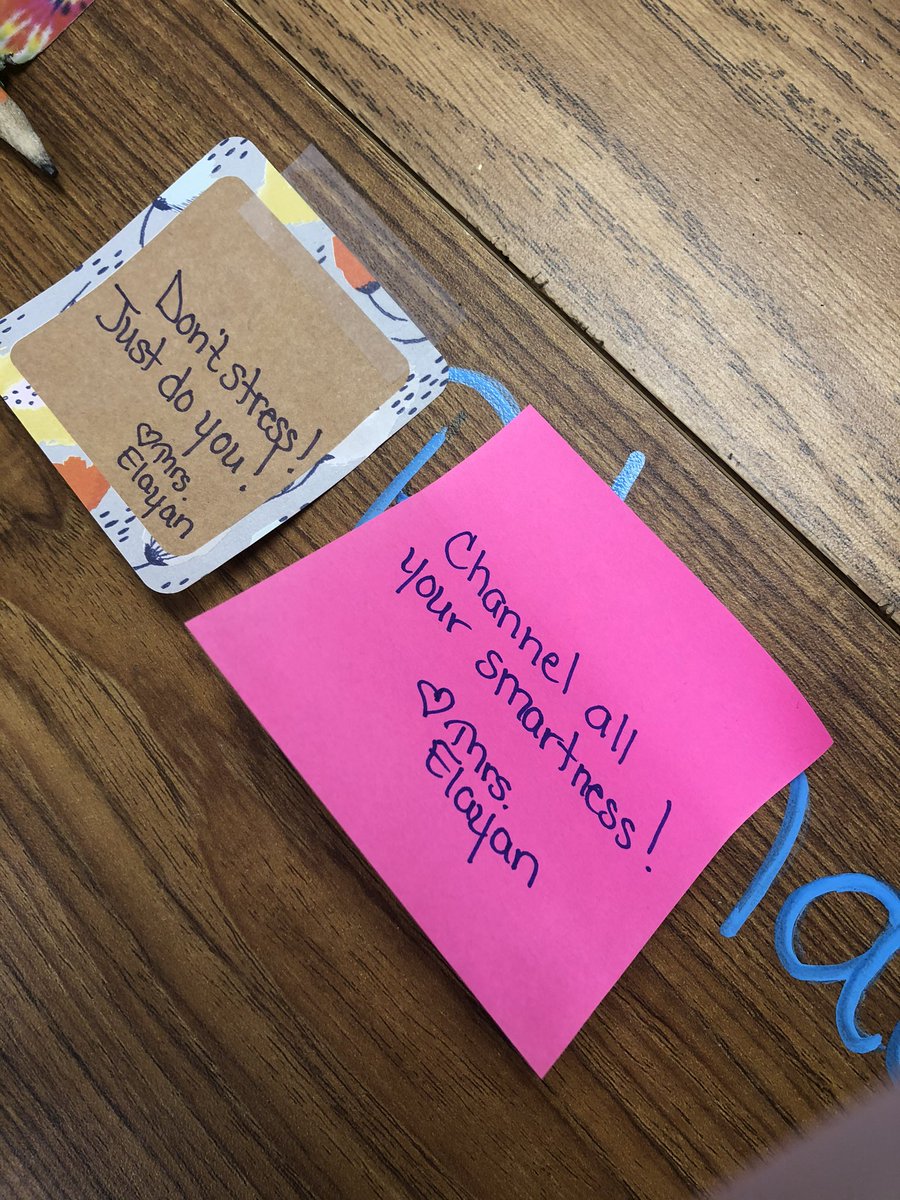 Don't stress!
Just do you!
♡ Mrs.
Elayan
Channel all
your smartness!
♡ Mrs.
Elayan